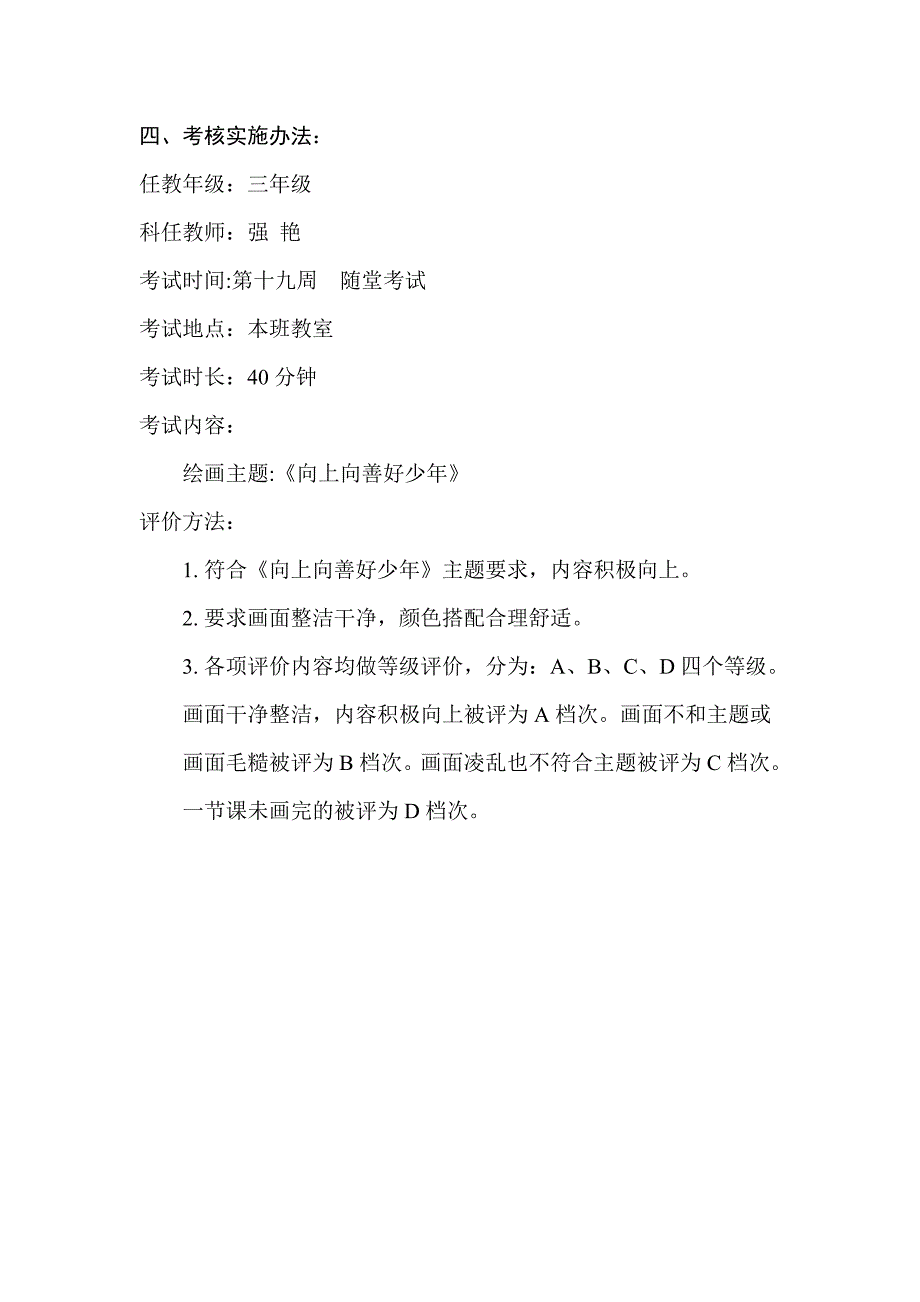 四、考核实施办法：
任教年级：三年级
科任教师：强 艳
考试时间:第十九周　随堂考试
考试地点：本班教室
考试时长：40 分钟
考试内容：
绘画主题:《向上向善好少年》
评价方法：
1. 符合《向上向善好少年》主题要求，内容积极向上。
2. 要求画面整洁干净，颜色搭配合理舒适。
3. 各项评价内容均做等级评价，分为：A、B、C、D 四个等级。
画面干净整洁，内容积极向上被评为 A 档次。画面不和主题或
画面毛糙被评为 B 档次。画面凌乱也不符合主题被评为 C 档次。
一节课未画完的被评为 D 档次。